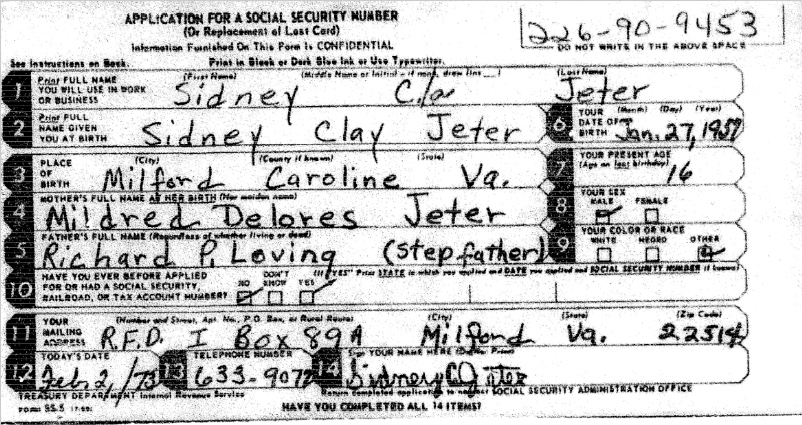 APPLICATION FOR A SOCIAL SECURITY NUMBER
(Or Replacement of Lost Card)
Information Furnished On This Form Is CONFIDENTIAL
226-90-9453
DO NOT WRITE IN THE ABOVE SPACE
See Instructions on Back. Print in Black or Dark Blue Ink or Use Typewriter.
1 Print FULL NAME YOU WILL USE IN WORK OR BUSINESS (First Name) (Middle Name or Initial – if none, draw line) (Last Name)
Sidney Clay Jeter
2 Print FULL NAME GIVEN YOU AT BIRTH
Sidney Clay Jeter
6 YOUR DATE OF BIRTH (Month) (Day) (Year)
Jan. 27, 1957
3 PLACE OF BIRTH (City) (County if known) (State)
Milford Caroline Va.
7 YOUR PRESENT AGE (Age on last birthday)
16
4 MOTHER'S FULL NAME AT HER BIRTH (Her maiden name)
Mildred Delores Jeter
8 YOUR SEX
MALE FEMALE
5 FATHER'S FULL NAME (Regardless of whether living or dead)
Richard P. Loving (stepfather)
9 YOUR COLOR OR RACE
WHITE NEGRO OTHER
10 HAVE YOU EVER BEFORE APPLIED FOR OR HAD A SOCIAL SECURITY, RAILROAD, OR TAX ACCOUNT NUMBER? NO DON'T KNOW YES
(If "YES" Print STATE in which you applied and DATE you applied and SOCIAL SECURITY NUMBER if known)
11 YOUR MAILING ADDRESS (Number and Street, Apt. No., P.O. Box, or Rural Route) (City) (State) (Zip Code)
R.F.D. I Box 89A Milford Va. 22514
12 TODAY'S DATE
Feb. 2, /73
13 TELEPHONE NUMBER
633-9072
14 Sign YOUR NAME HERE (Do Not Print)
Sidney C. Jeter
TREASURY DEPARTMENT Internal Revenue Service Return completed application to nearest SOCIAL SECURITY ADMINISTRATION OFFICE
FORM SS-5 HAVE YOU COMPLETED ALL 14 ITEMS?